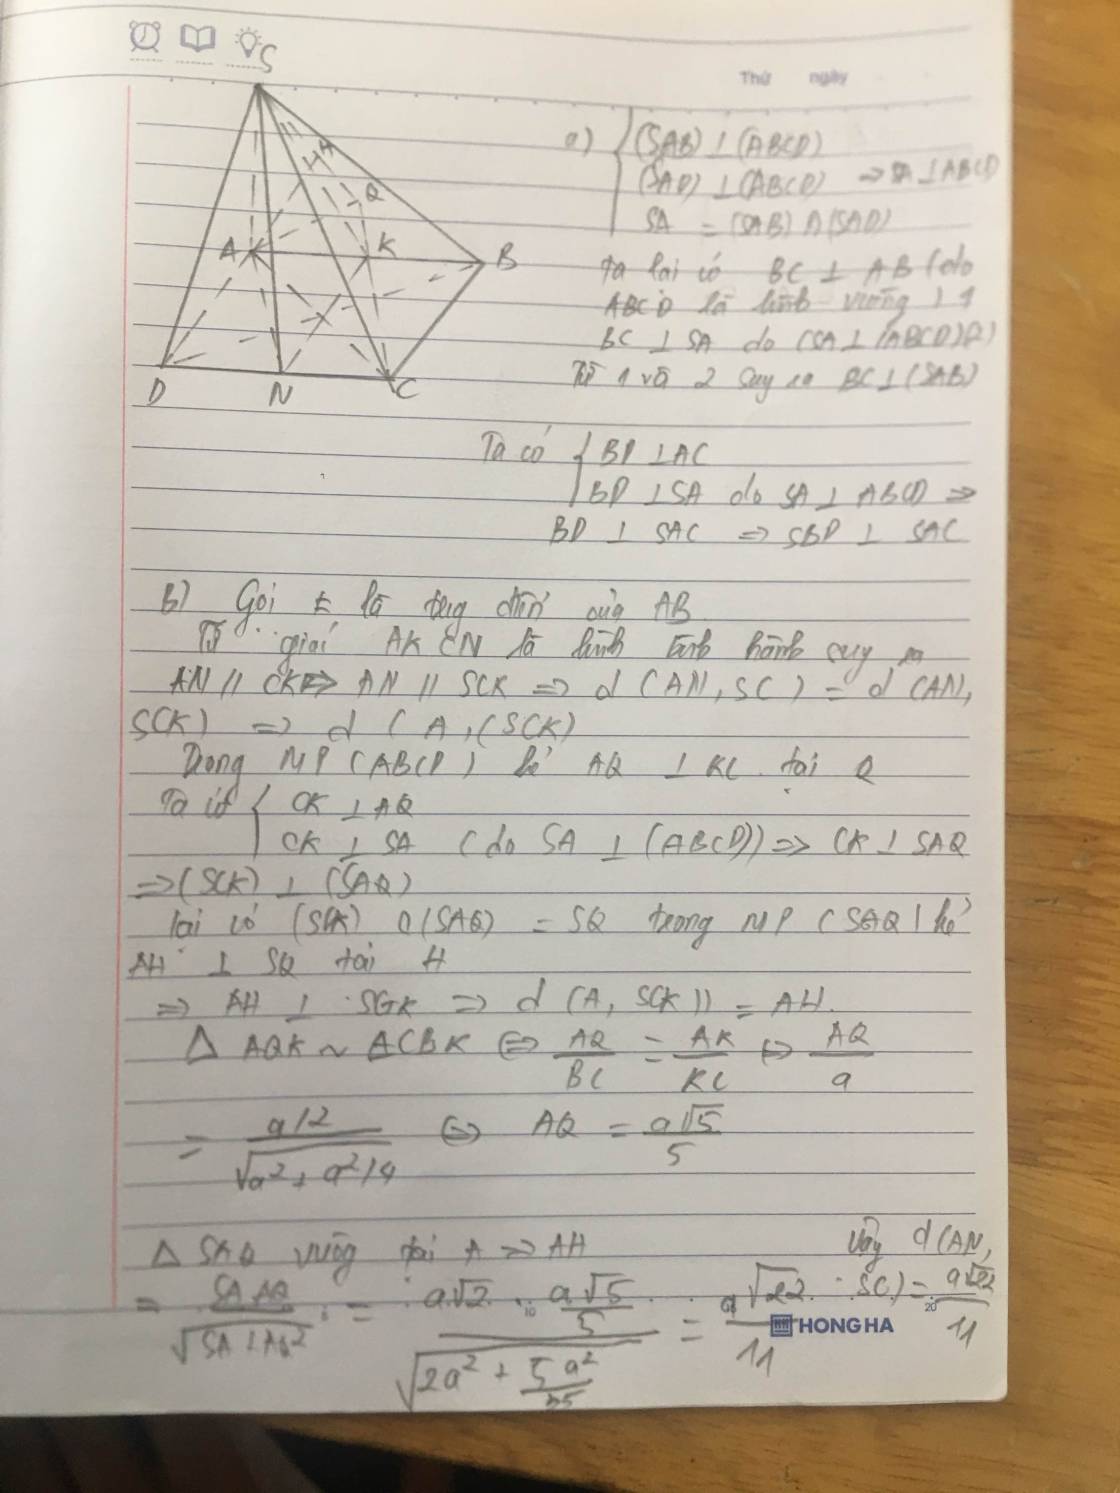 Thứ ngày
S
H
Q
A
K
B
D
N
C
a) { (SAB) ⊥ (ABCD)
(SAD) ⊥ (ABCD) => SA ⊥ ABCD
SA = (SAB) ∩ (SAD)
Ta lại có BC ⊥ AB (do
ABCD là hình vuông) 1
BC ⊥ SA do (SA ⊥ (ABCD) 2)
Từ 1 và 2 suy ra BC ⊥ (SAB)
Ta có { BD ⊥ AC
BD ⊥ SA do SA ⊥ ABCD =>
BD ⊥ SAC => SBD ⊥ SAC
b) Gọi K là trung điểm của AB
Tứ giác AKCN là hình bình hành suy ra
AN // CK => AN // SCK => d (AN, SC) = d (AN,
SCK) => d (A, (SCK)
Trong MP (ABCD) kẻ AQ ⊥ KC tại Q
Ta có { CK ⊥ AQ
CK ⊥ SA (do SA ⊥ (ABCD)) => CK ⊥ SAQ
=> (SCK) ⊥ (SAQ)
lại có (SCK) ∩ (SAQ) = SQ trong MP (SAQ) kẻ
AH ⊥ SQ tại H
=> AH ⊥ SCK => d (A, SCK)) = AH.
Δ AQK ~ ΔCBK <=> AQ/BC = AK/KC <=> AQ/a
= (a/2)/√(a² + a²/4) <=> AQ = a√5/5
Δ SAQ vuông tại A => AH Vậy d(AN,
= SA.AQ/√(SA²+AQ²) = (a√2 . a√5/5)/√(2a² + 5a²/25) = a√22/11 SC) = a√22/11
10
20
HONG HA